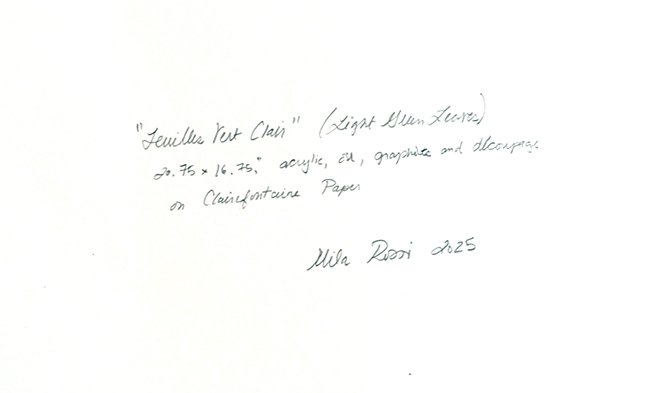 "Feuilles Vert Clair" (Light Green Leaves)
20.75 x 16.75," acrylic, oil, graphite and decoupage
on Clairefontaine Paper
Mila Rossi 2025